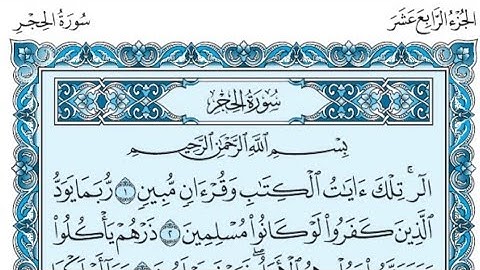 الجُزْءُ الرَّابِعَ عَشَرَ
سُورَةُ الحِجْرِ
سُورَةُ الحِجْرِ
بِسْمِ ٱللَّهِ ٱلرَّحْمَٰنِ ٱلرَّحِيمِ
الٓرۚ تِلْكَ ءَايَٰتُ ٱلْكِتَٰبِ وَقُرْءَانٍ مُّبِينٍ ١ رُّبَمَا يَوَدُّ
ٱلَّذِينَ كَفَرُوا۟ لَوْ كَانُوا۟ مُسْلِمِينَ ٢ ذَرْهُمْ يَأْكُلُوا۟